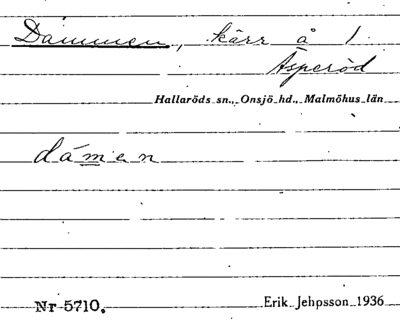 Dammen, kärr å 1
Äsperöd
Hallaröds sn., Onsjö hd., Malmöhus län
dámen
Nr 5710. Erik Jehpsson 1936